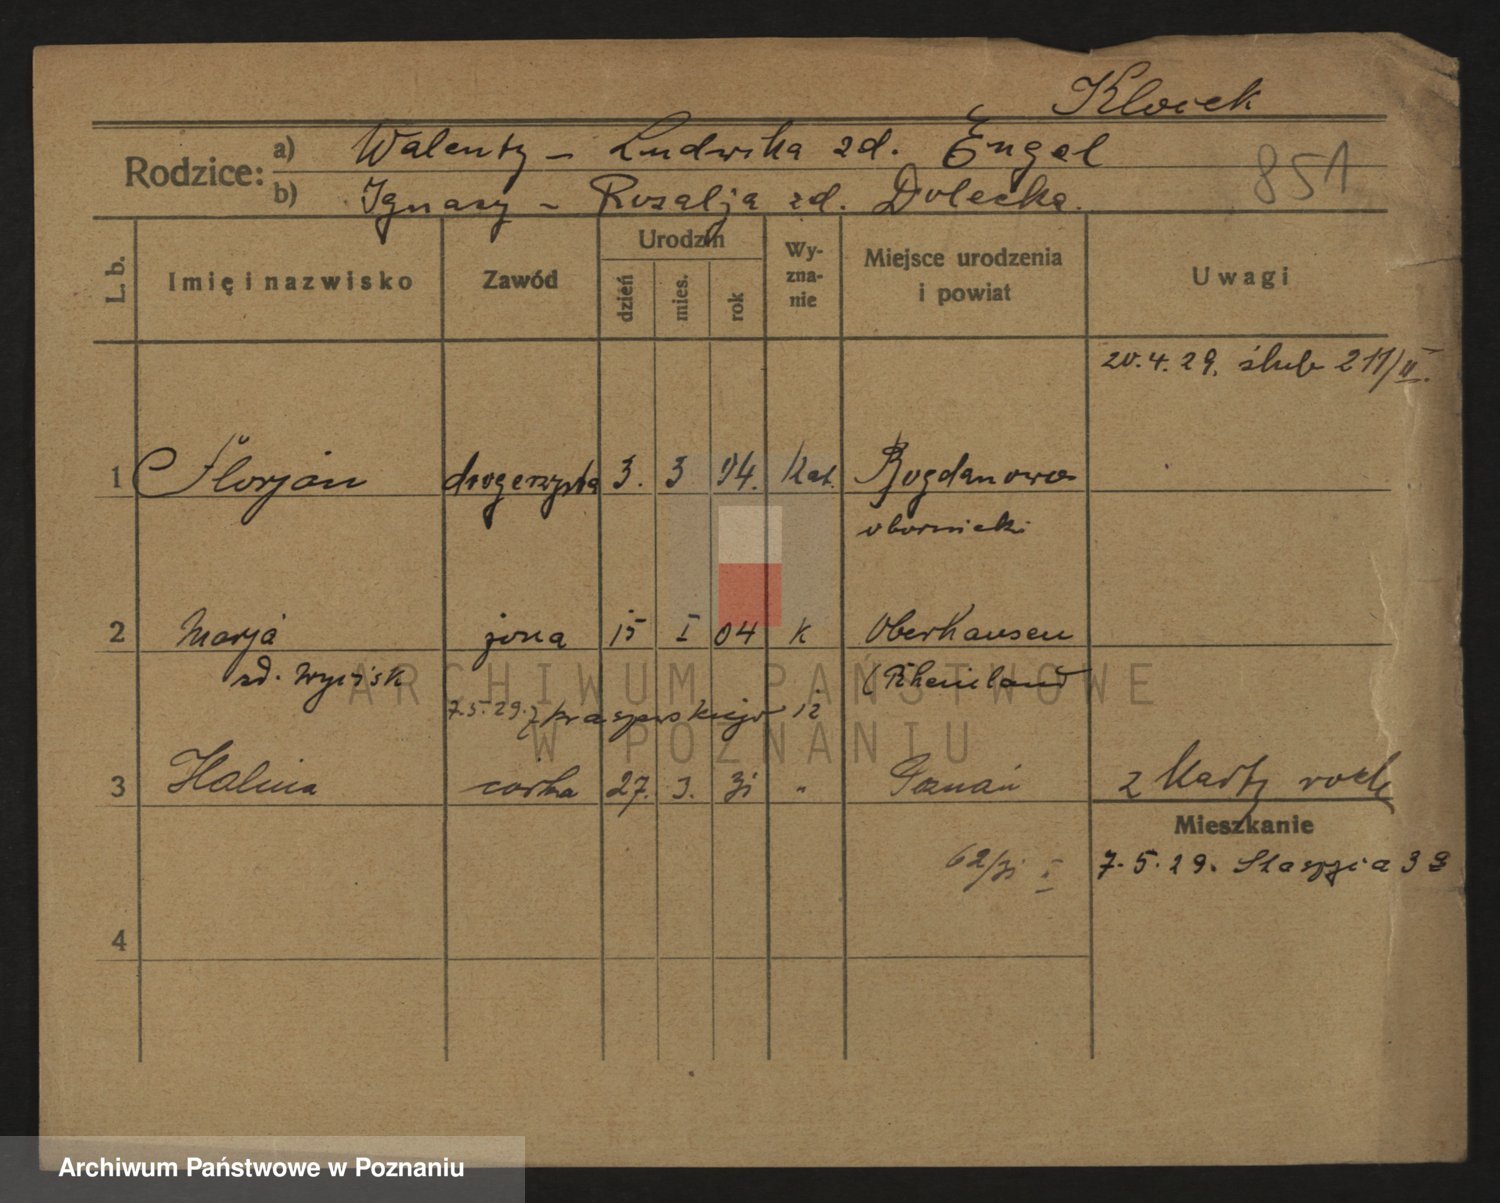 Klocek
Rodzice: a) Walenty – Ludwika zd. Engel
b) Ignacy – Rozalja zd. Dolecka.
851
L. b. Imię i nazwisko Zawód Urodzin dzień mies. rok Wyznanie Miejsce urodzenia i powiat Uwagi
20.4.29. ślub 211/II.
1 Florjan drogerzysta 3. 3 04. Kat. Bogdanowo
obornicki
2 Marja żona 15 I 04 K Oberhausen
zd. Wyciśk (Rheinland
7.5.29. z Kraszewskiego 12
3 Halina córka 27. 3. 31 " Poznań z Karty rodz
Mieszkanie
62/31 I 7.5.29. Staszica 3
4
ARCHIWUM PAŃSTWOWE
W POZNANIU
Archiwum Państwowe w Poznaniu